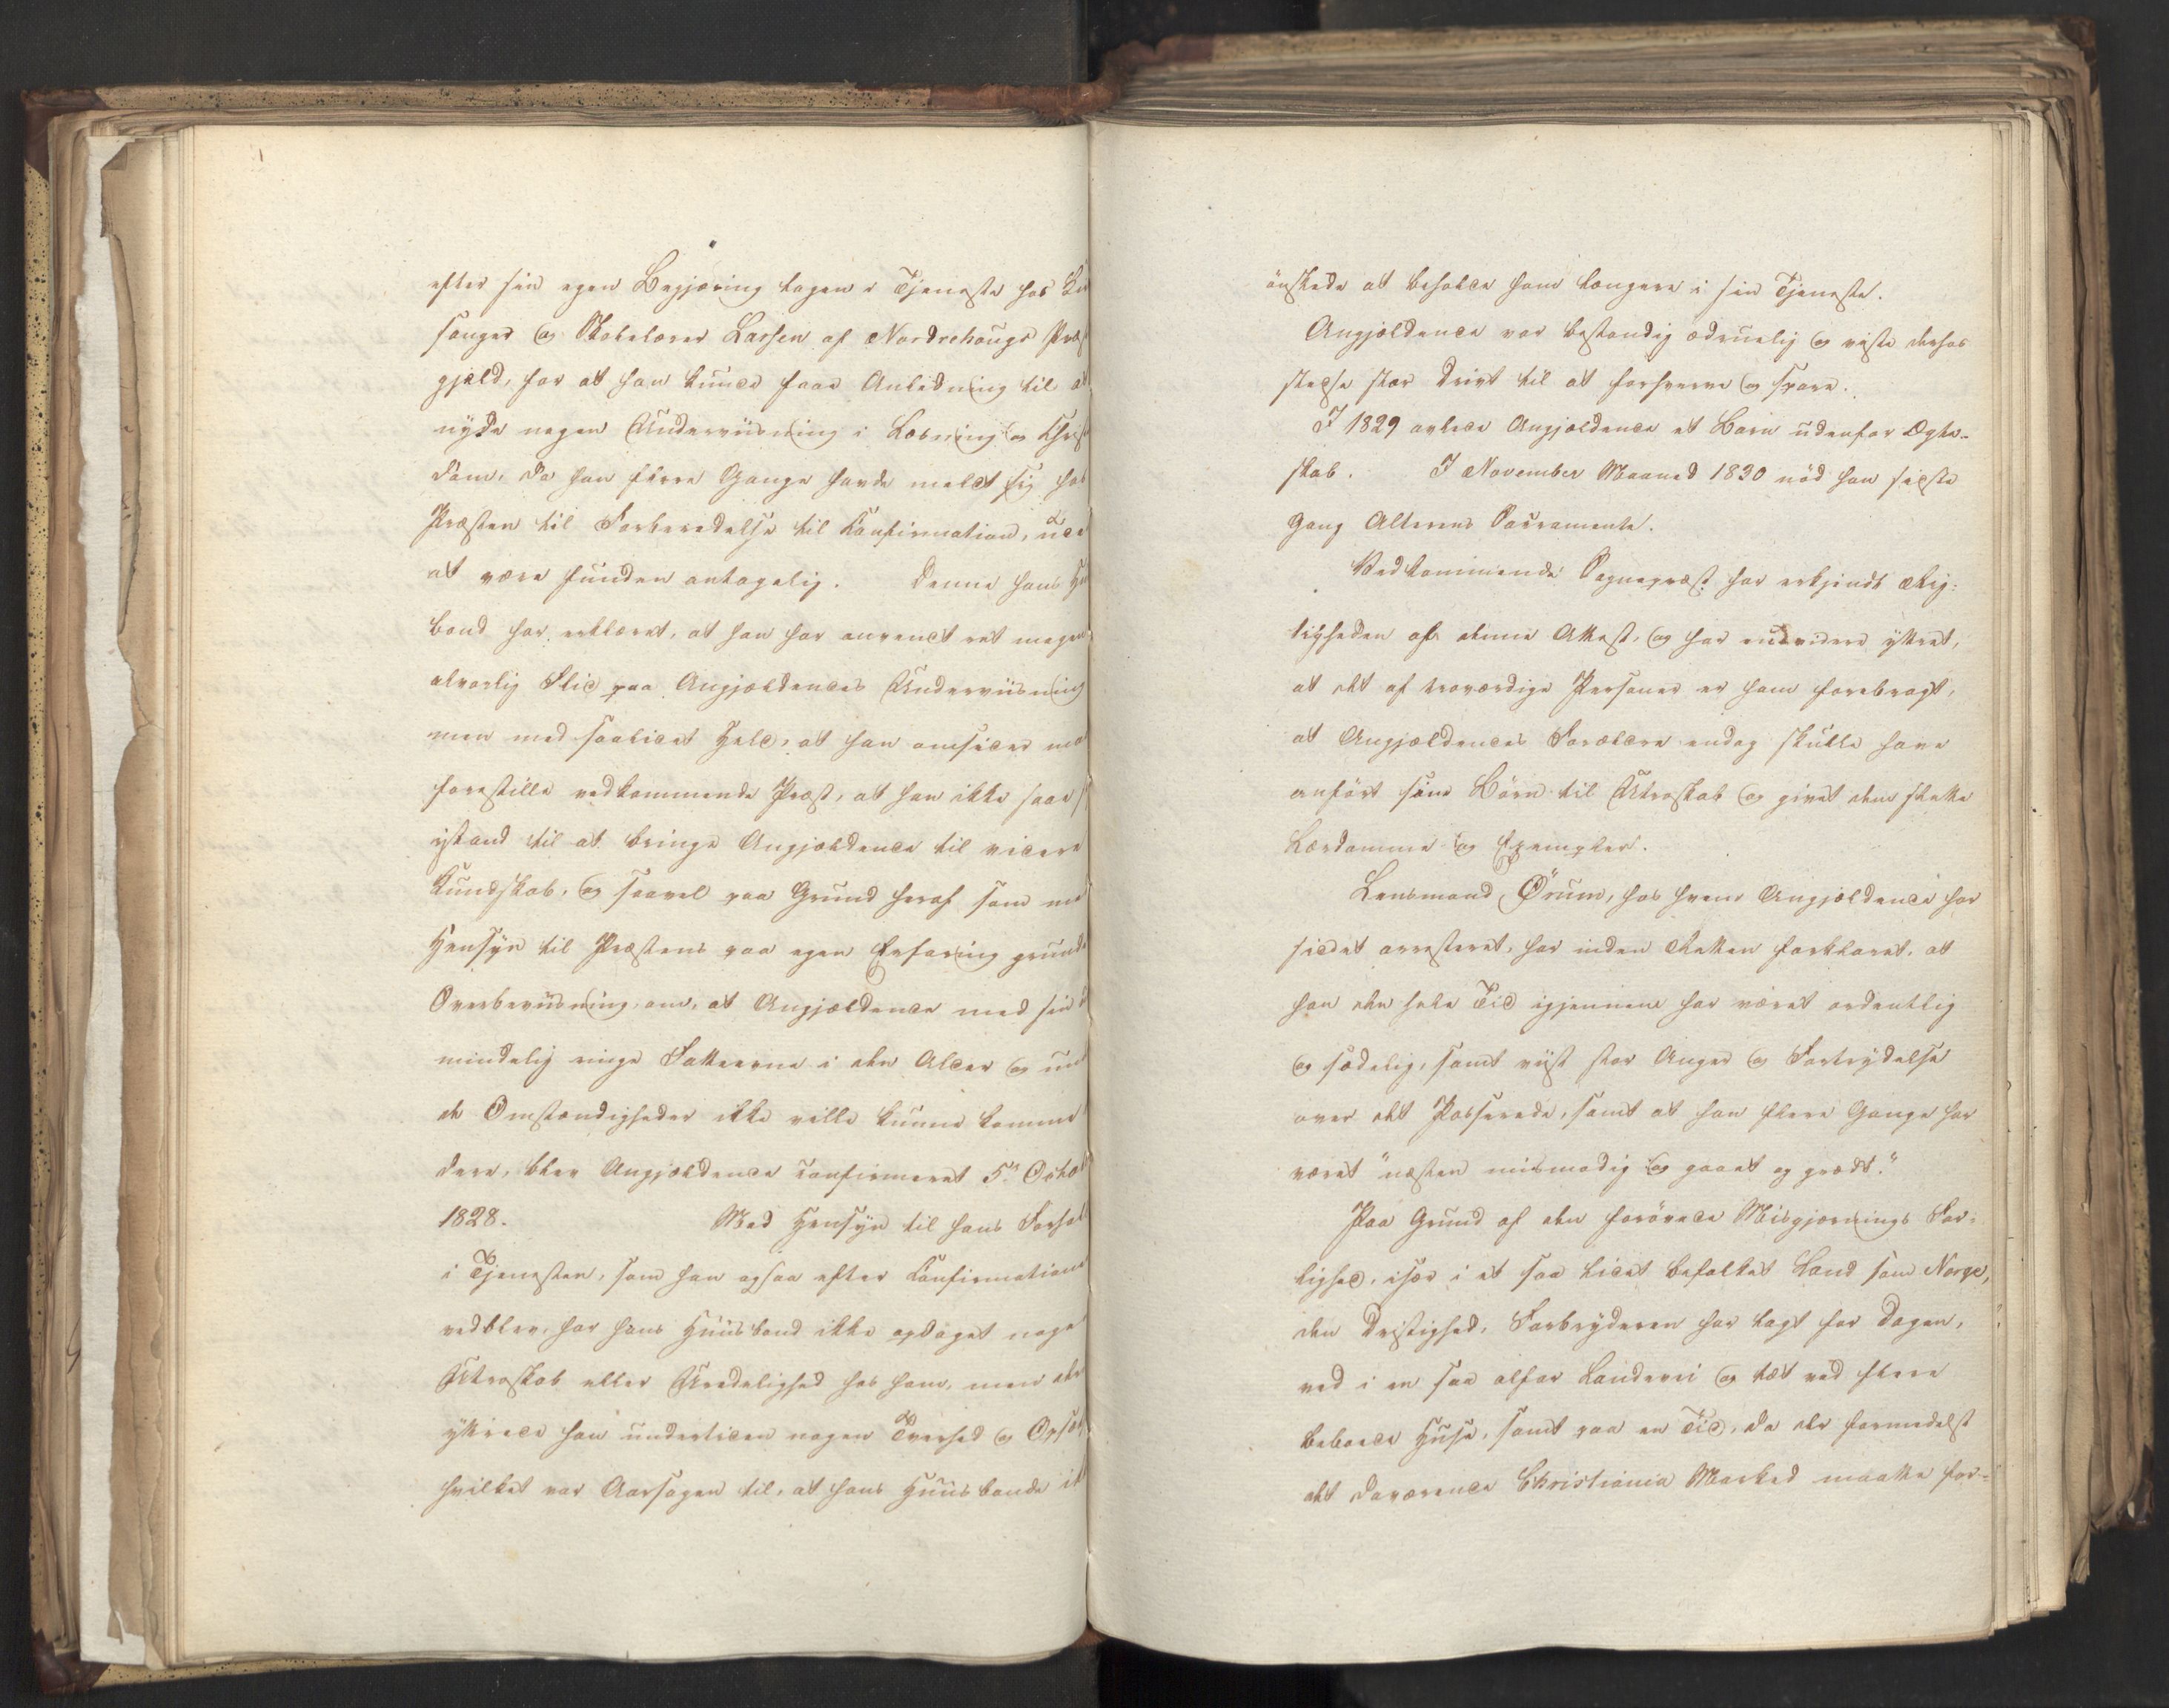 efter sin egen Begjæring tagen i Tjeneste hos Kir
sanger og Skolelærer Larsen af Nordrehougs Præs
gjæld, for at han kunde faae Anledning til at
nyde nogen Underviisning i Læsning og Chris
dom, da han flere Gange havde meldt sig hos
Præsten til Forberedelse til Confirmation, uden
at være funden antagelig. Denne hans Huu
bond har erklæret, at han har anvendt ret megen
alvorlig Flid paa Angjældendes Underviisning
men med saalidet Held, at han omsider maa
forestille vedkommende Præst, at han ikke saae s
istand til at bringe Angjældende til videre
Kundskab, og saavel paa Grund heraf som med
Hensyn til Præstens paa egen Erfaring grunde
Overbeviisning om, at Angjældende med sin u
mindelig ringe Fatteevne i den Alder og und
de Omstændigheder ikke ville kunne komme vi
dere, blev Angjældende confirmeret 5te Octob
1828. Med Hensyn til hans Forhol
i Tjenesten, som han ogsaa efter Confirmationen
vedblev, har hans Huusbond ikke opdaget noge
Utroskab eller Uredelighed hos ham, men der
yttrede han undertiden nogen Tverhed og Opsæt
hvilket var Aarsagen til, at hans Huusbonde ik
ønskede at beholde ham længere i sin Tjeneste.
Angjældende var bestandig ædruelig og viste derhos
stedse stor Drivt til at forhverve og spare.
I 1829 avlede Angjældende et Barn udenfor Ægte-
skab. I November Maaned 1830 nød han sidste
Gang Alterens Sacramente.
Vedkommende Sognepræst har erkjendt Rig-
tigheden af denne Attest, og har endvidere yttret,
at det af troværdige Personer er ham forebragt,
at Angjældendes Forældre endog skulle have
anført sine Børn til Utroskab og givet dem slette
Lærdomme og Exempler.
Lensmand Ørum, hos hvem Angjældende har
siddet arresteret, har inden Retten forklaret, at
han den hele Tid igjennem har været ordentlig
og sædelig, samt viist stor Anger og Fortrydelse
over det Passerede, samt at han flere Gange har
været "næsten mismodig og gaaet og grædt."
Paa Grund af den forøvede Misgjernings Far-
lighed, især i et saa lidet befolket Land som Norge,
den Dristighed, Forbryderen har lagt for Dagen,
ved i en saa alfar Landevei og tæt ved flere
beboede Huse, samt paa en Tid, da der formedelst
det daværende Christiania Marked maatte for-